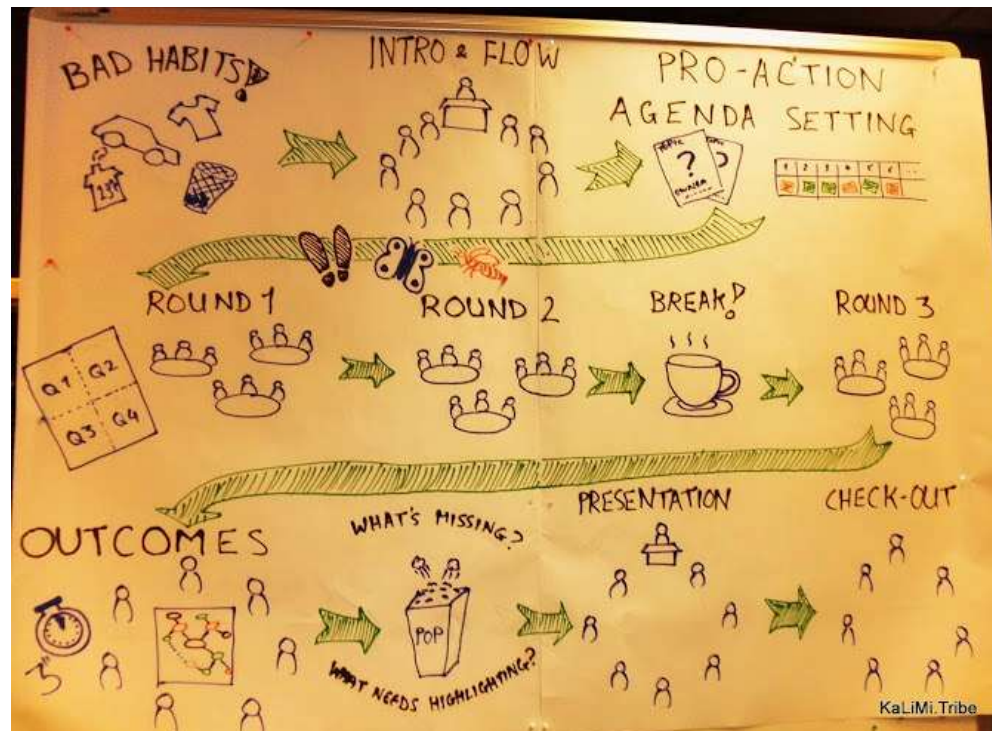 BAD HABITS!
INTRO & FLOW
PRO-ACTION
AGENDA SETTING
?
?
1 2 3 4 5 6 ..
ROUND 1
ROUND 2
BREAK!
ROUND 3
Q1 Q2
Q3 Q4
OUTCOMES
3"
WHAT'S MISSING?
POP
WHAT NEEDS HIGHLIGHTING?
PRESENTATION
CHECK-OUT
KaLiMi.Tribe